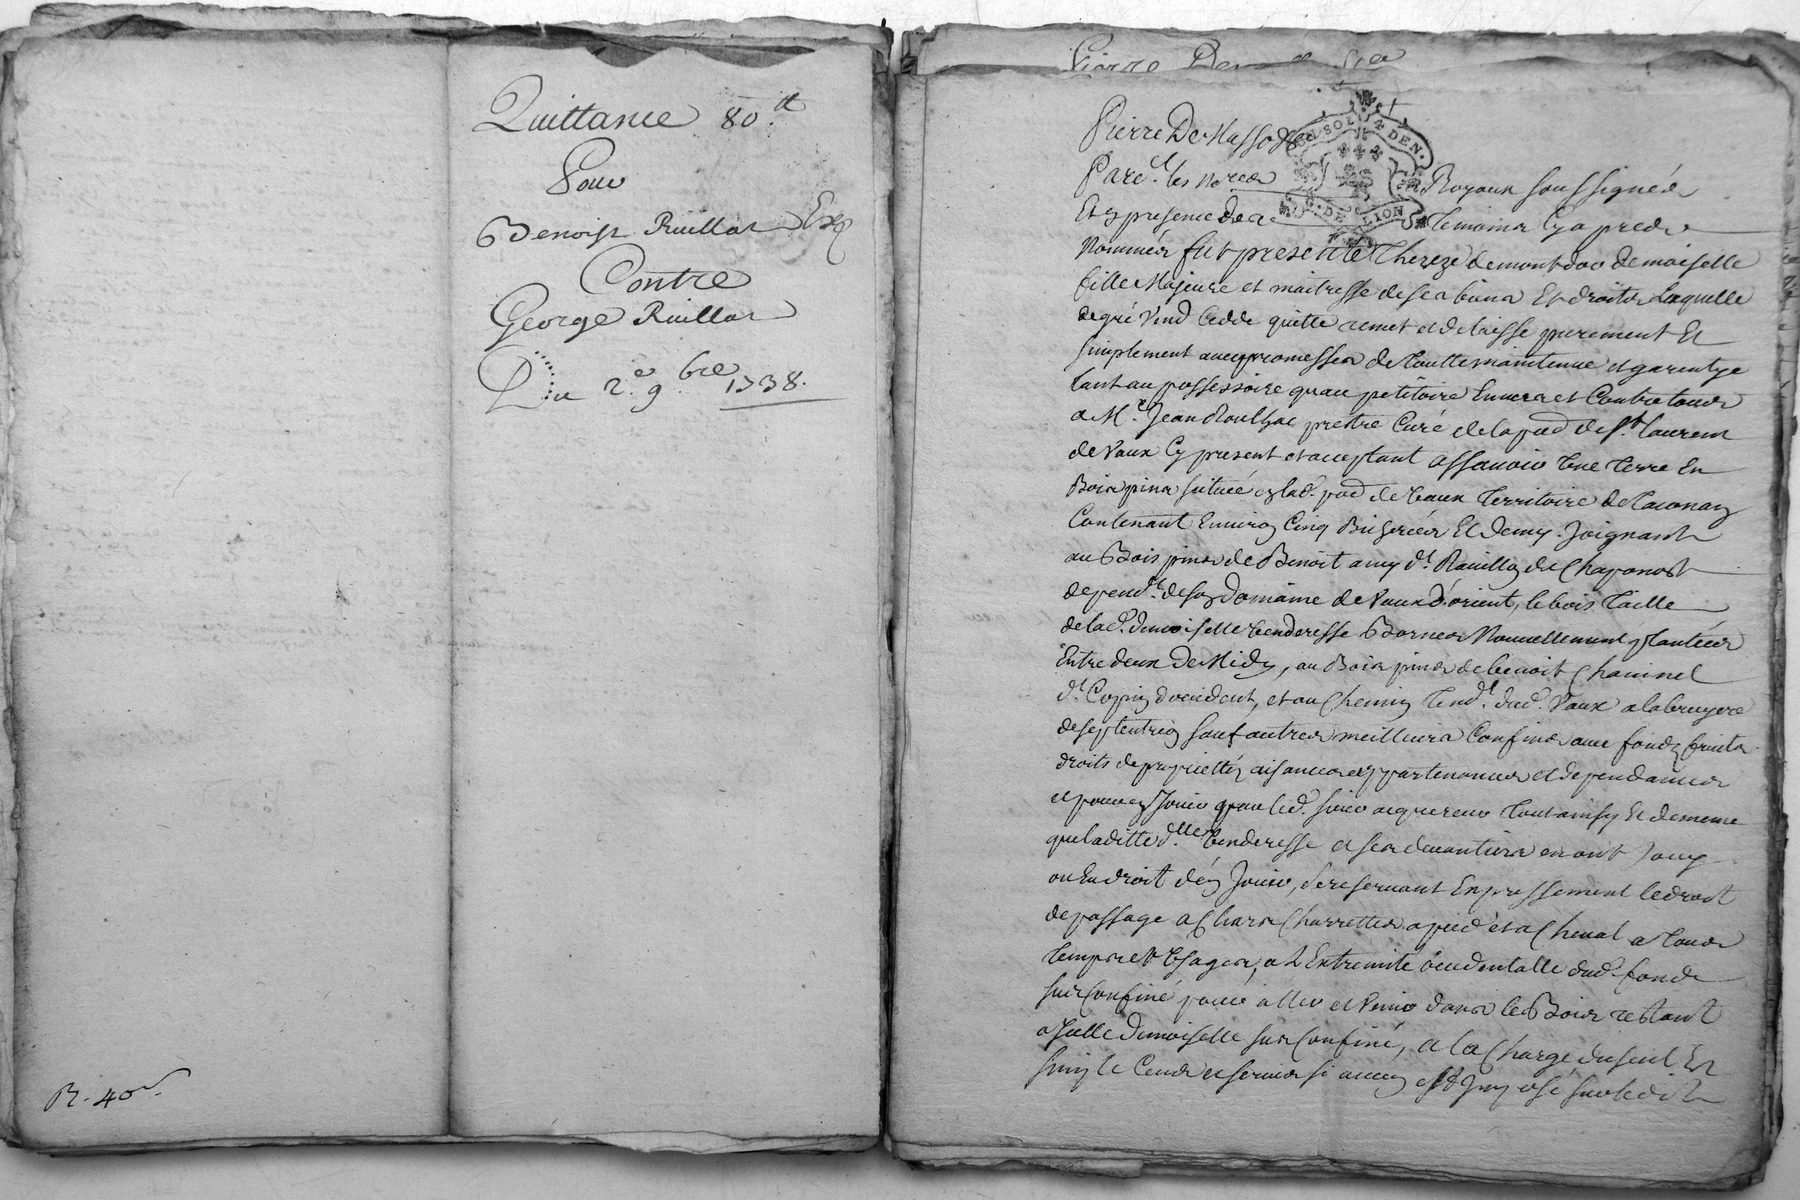 Quittance 80.tt
Pour
Benoist Ruillat
Contre
George Ruillat
Du 2.e 9.bre 1738.
R. 40s.
Pierre De
Pierre De Masso
Pard.t les no.res Royaux soussignés
Et en presence des temoins cy apres
Nommés fut presente Thereze demont d'or demoiselle
fille Majeure et maitresse de ses biens Et droits Laquelle
de gré Vend Cedde quitte remet et delaisse purement Et
simplement avec promesses de toutte maintenue et garentye
tant au possessoire quau petitoire Envers et Contre tous
a M.re Jean prestre Curé de la pad de St. Laurent
de Vaux Cy present et acceptant assavoir Une Terre En
Bois pins située en lad. pad de Vaux Territoire de
Contenant Environ Cinq Bicherées Et demy. Joignant
au Bois pins de Benoit d.t de Chaponost
depend.t de son Domaine de Vaux d'orient, le bois Taille
de lad. demoiselle Venderesse Bornes Nouvellement plantées
Entre deux De Midy, au Bois pins de benoit
d.t d'occident, et au Chemin Tend.t dud. Vaux a la bruyere
de septentrion sauf autres meilleurs Confins avec fonds fruits
droits de proprietté aisances appartenances et dependances
et pour en Jouir par led. sieur acquereur tout ainsy Et de meme
que laditte d.lle Venderesse et ses devantiers en ont Jouy
ou Eu droit d'en Jouir, se reservant Expressement le droit
de passage a Chars Charrettes a pied et a Cheval a tous
temps et Usages, a L'Extremité occidentalle dud. fonds
sus Confiné pour aller et Venir dans le Bois restant
a Jcelle Demoiselle sus Confiné, a la Charge du seul Et
simple Cens et servis si aucun est Jmposé sur ledit
G. DE LION
SOL DEN.